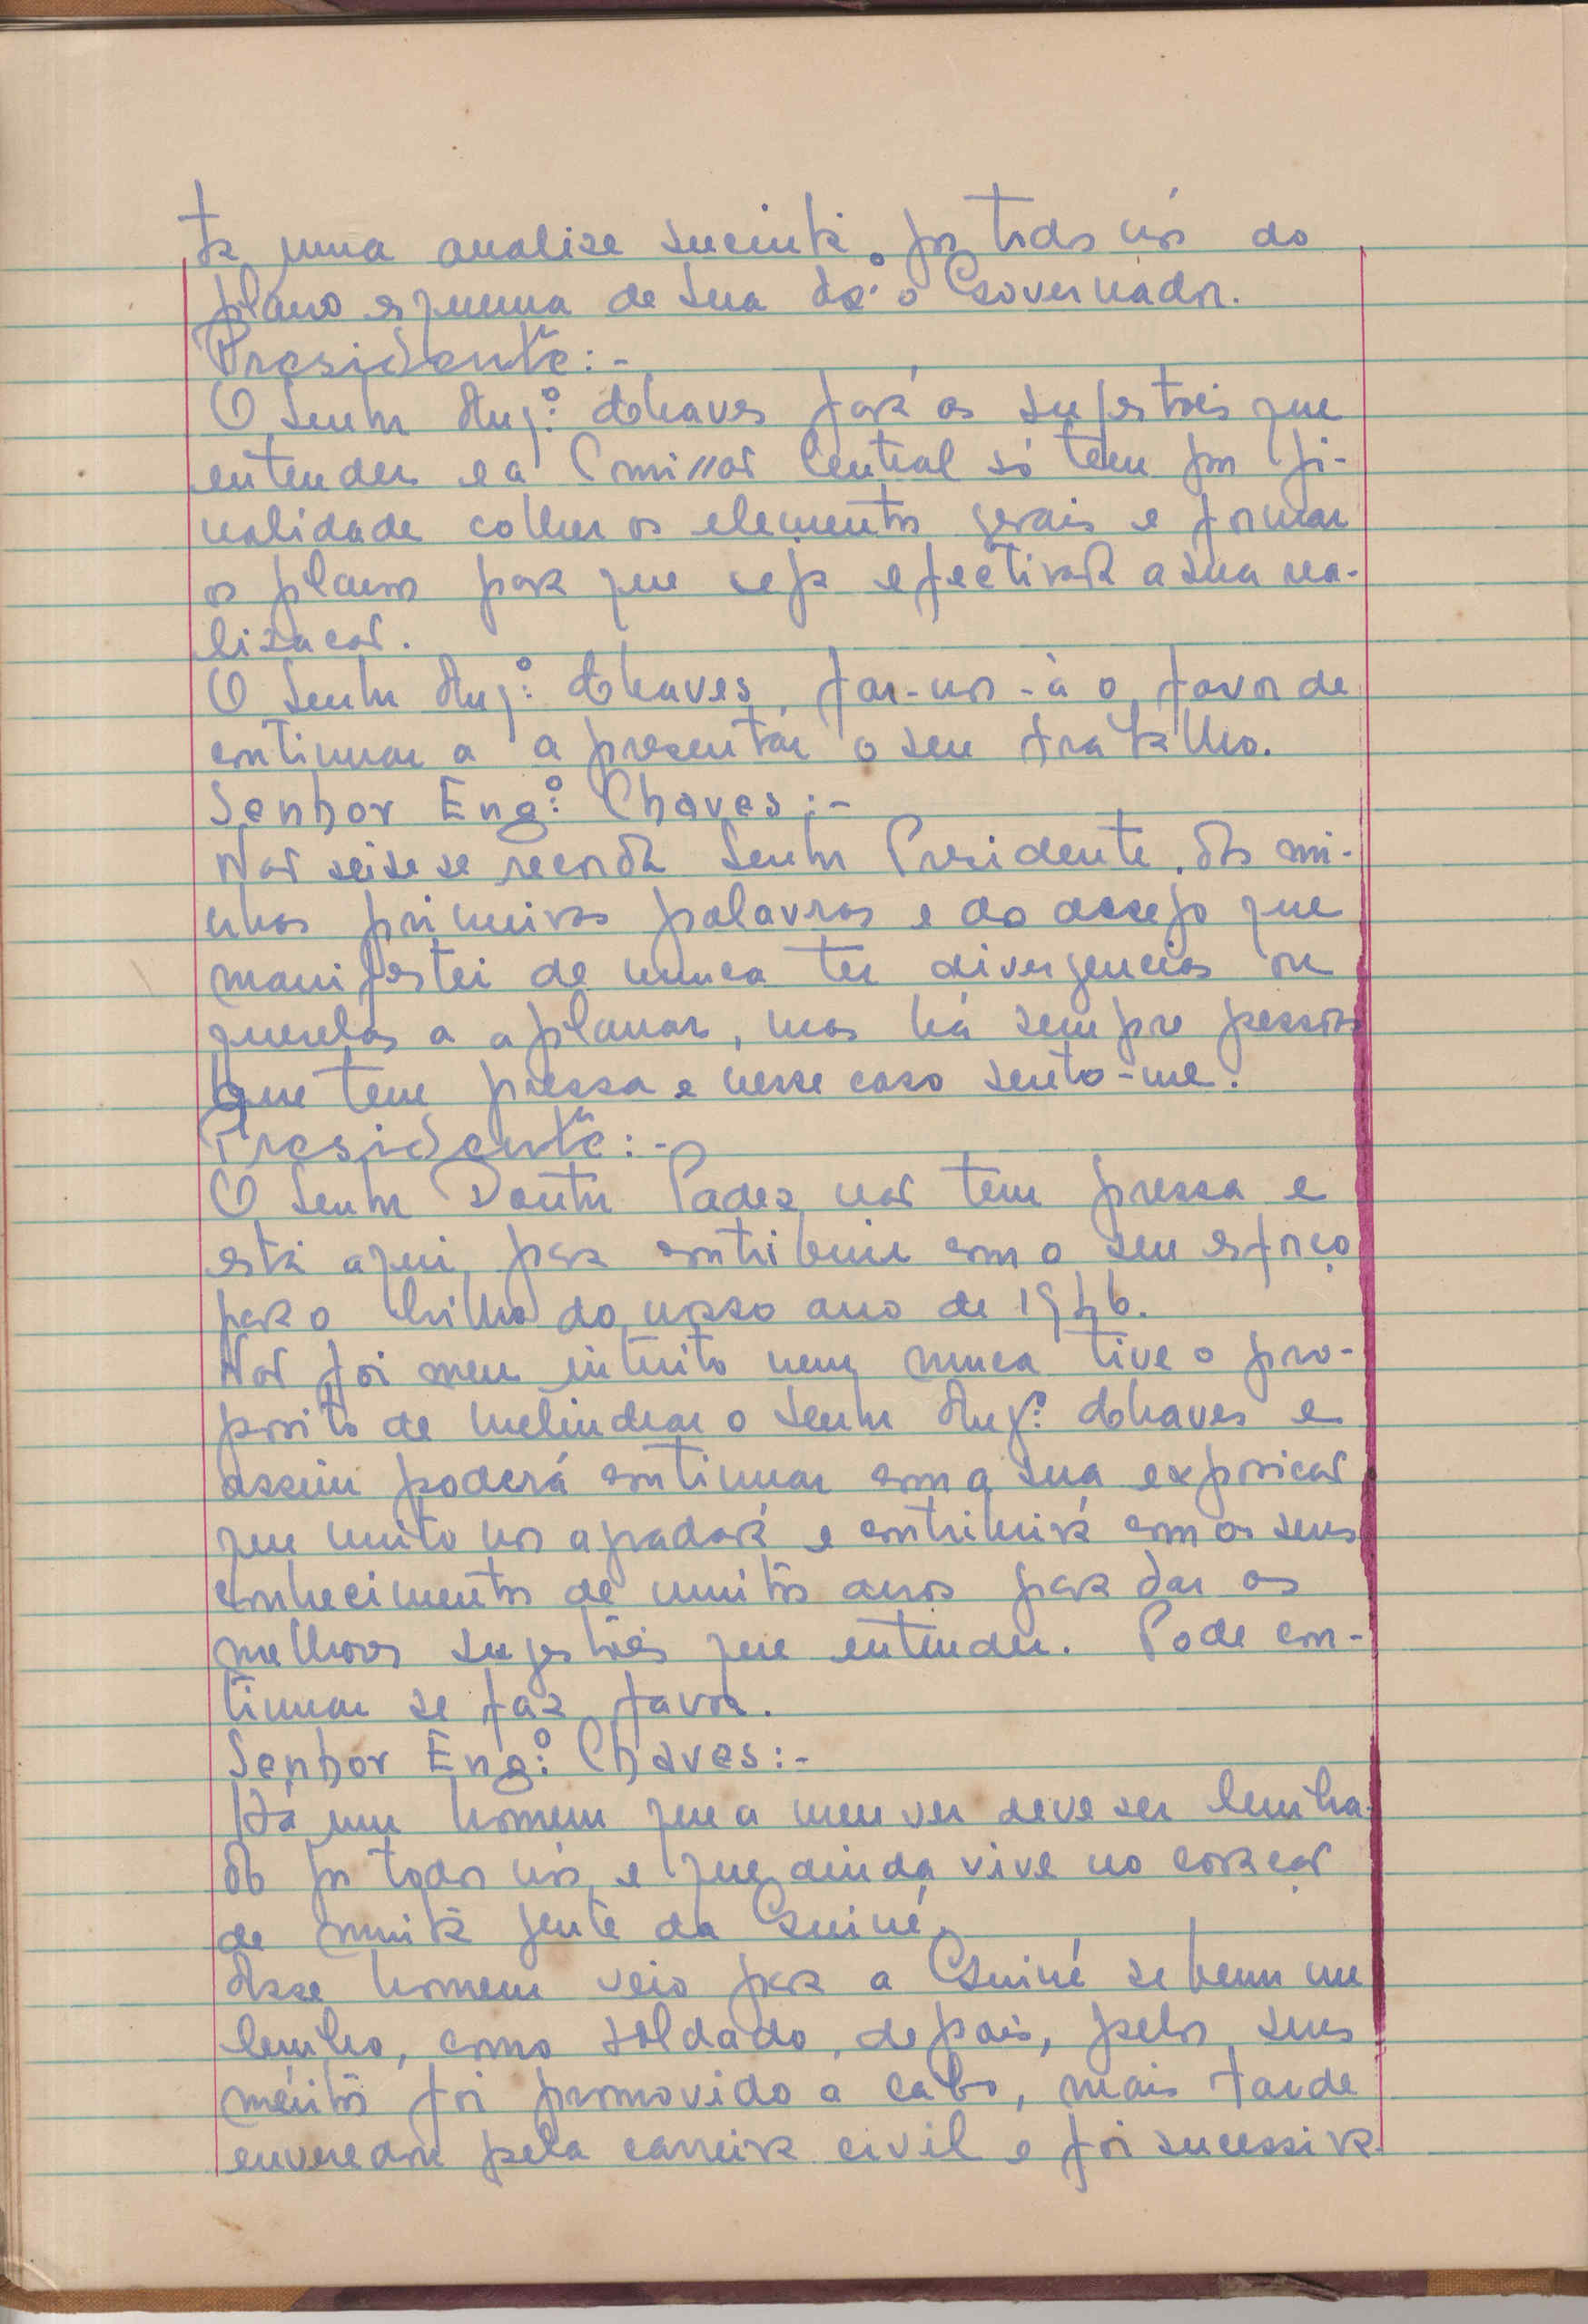 ta uma analise sucinta, por todos nós do
plano esquema de Sua Ex.º o Governador.
Presidente:-
O Senhor Eng.º Chaves fará as sugestões que
entender e a Comissão Central só tem por fi-
nalidade colher os elementos gerais e formar
os planos para que seja efectivada a sua rea-
lização.
O Senhor Eng.º Chaves, far-nos-á o favor de
continuar a apresentar o seu trabalho.
Senhor Eng.º Chaves:-
Não sei se se recorda Senhor Presidente, das mi-
nhas primeiras palavras e do desejo que
manifestei de nunca ter divergencias ou
querelas a aplanar, mas há sempre pessoas
que tem pressa e nesse caso sento-me.
Presidente:-
O Senhor Doutor Pades não tem pressa e
está aqui para contribuir com o seu esforço
para o brilho do nosso ano de 1946.
Não foi meu intuito nem nunca tive o pro-
posito de melindrar o Senhor Eng.º Chaves e
assim poderá continuar com a sua exposição
que muito nos agradará e contribuirá com os seus
conhecimentos de muitos anos para dar as
melhores sugestões que entender. Pode con-
tinuar se faz favor.
Senhor Eng.º Chaves:-
Há um homem que a meu ver deve ser lembra-
do por todos nós, e que ainda vive no coração
de muita gente da Guiné.
Esse homem veio para a Guiné se bem me
lembro, como soldado, depois, pelos seus
méritos foi promovido a cabo, mais tarde
enveredou pela carreira civil e foi sucessiva-